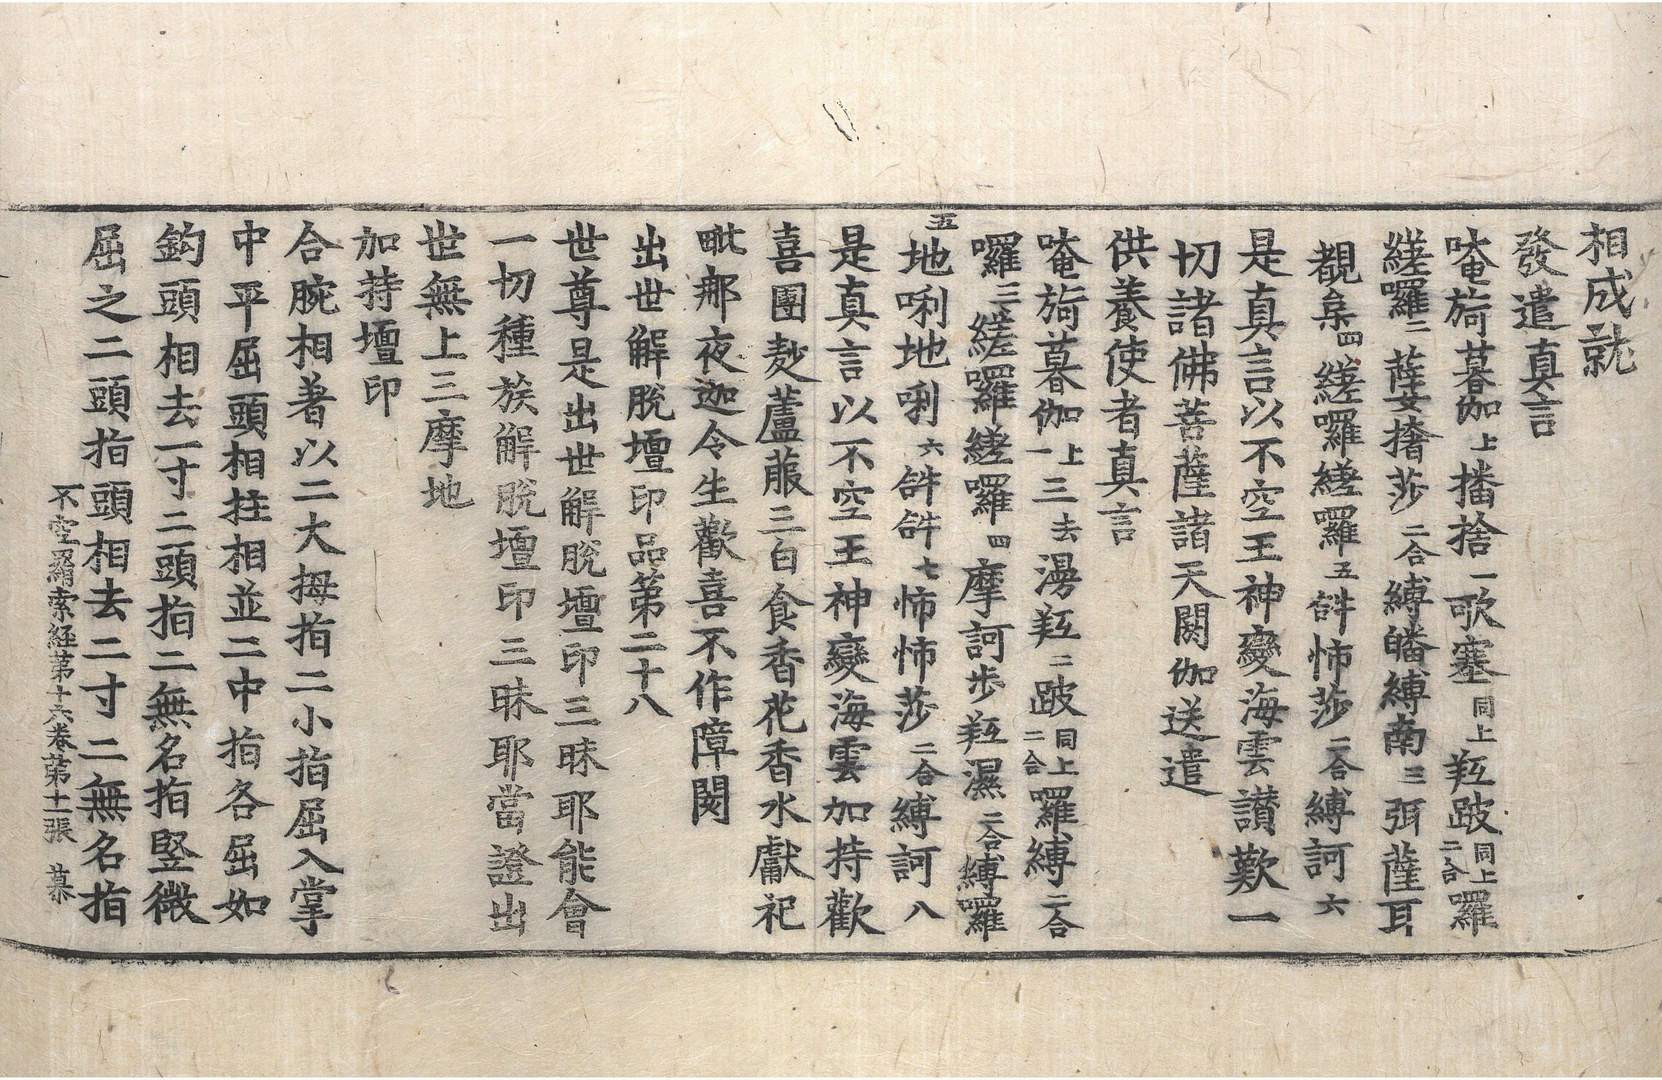 相成就
發遣真言
唵旖暮伽上播捨一歌塞同上羟跛同上二合囉
縒囉二薩嫛㩭莎二合縛皤縛南三弭薩耳
覩㮈四縒囉縒囉五𤙖怖莎二合縛訶六
是真言以不空王神變海雲讃歎一
切諸佛菩薩諸天閼伽送遣
供養使者真言
唵旖暮伽上一三去漫羟二跛同上二合囉縛二合
囉三縒囉縒囉四摩訶步羟濕二合縛囉
五地唎地唎六𤙖𤙖七怖怖莎二合縛訶八
是真言以不空王神變海雲加持歡
喜團麨蘆菔三白食香花香水獻祀
毗那夜迦令生歡喜不作障閡
出世解脫壇印品第二十八
世尊是出世解脫壇印三昧耶能會
一切種族解脫壇印三昧耶當證出
世無上三摩地
加持壇印
合腕相著以二大拇指二小指屈入掌
中平屈頭相拄相並二中指各屈如
鈎頭相去一寸二頭指二無名指竪微
屈之二頭指頭相去二寸二無名指
不空羂索経第十六卷第十一張 慕